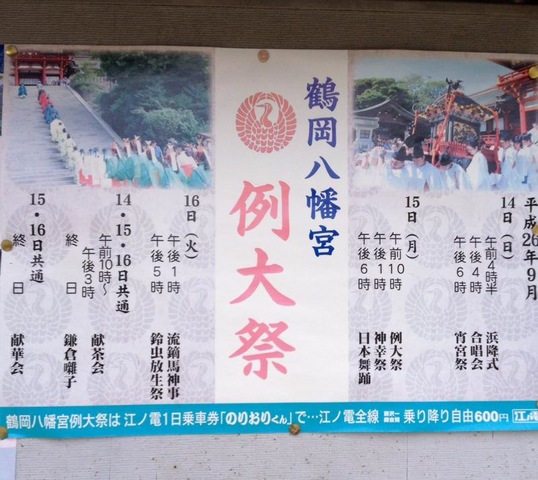 鶴岡八幡宮
例大祭
平成26年9月
14日（日）
午前4時半 浜降式
午後4時 合唱会
午後6時 宵宮祭
15日（月）
午前10時 例大祭
午後1時 神幸祭
午後6時 日本舞踊
16日（火）
午後1時 流鏑馬神事
午後5時 鈴虫放生祭
14・15・16日共通
午前10時～午後3時 献茶会
終日 鎌倉囃子
15・16日共通
終日 献華会
鶴岡八幡宮例大祭は 江ノ電1日乗車券「のりおりくん」で…江ノ電全線 藤沢―鎌倉間 乗り降り自由600円 江ノ電